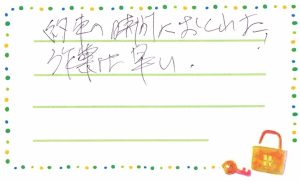 約束の時間におくれた、
作業は早い.